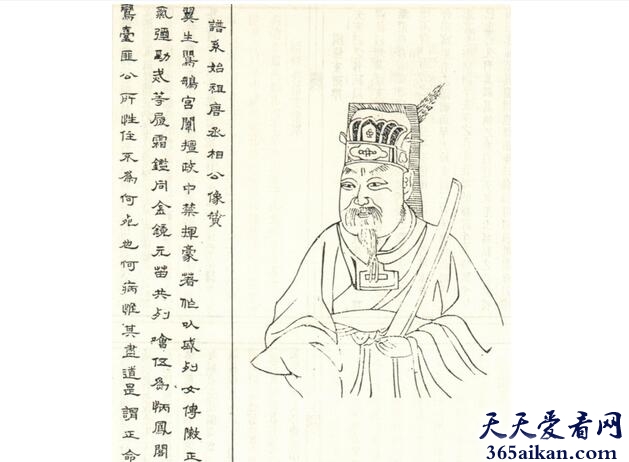 譜系始祖唐丞相公像贊
翼生宮闈擅政中禁揮豪著作以盛列女傳徽正
氣彌勁等履霜鑑同金鏡元苗共列伍為炳鳳閣
鸞臺匪公所性不為何也何病惟其盡道是謂正命
天天爱看网
365aikan.com